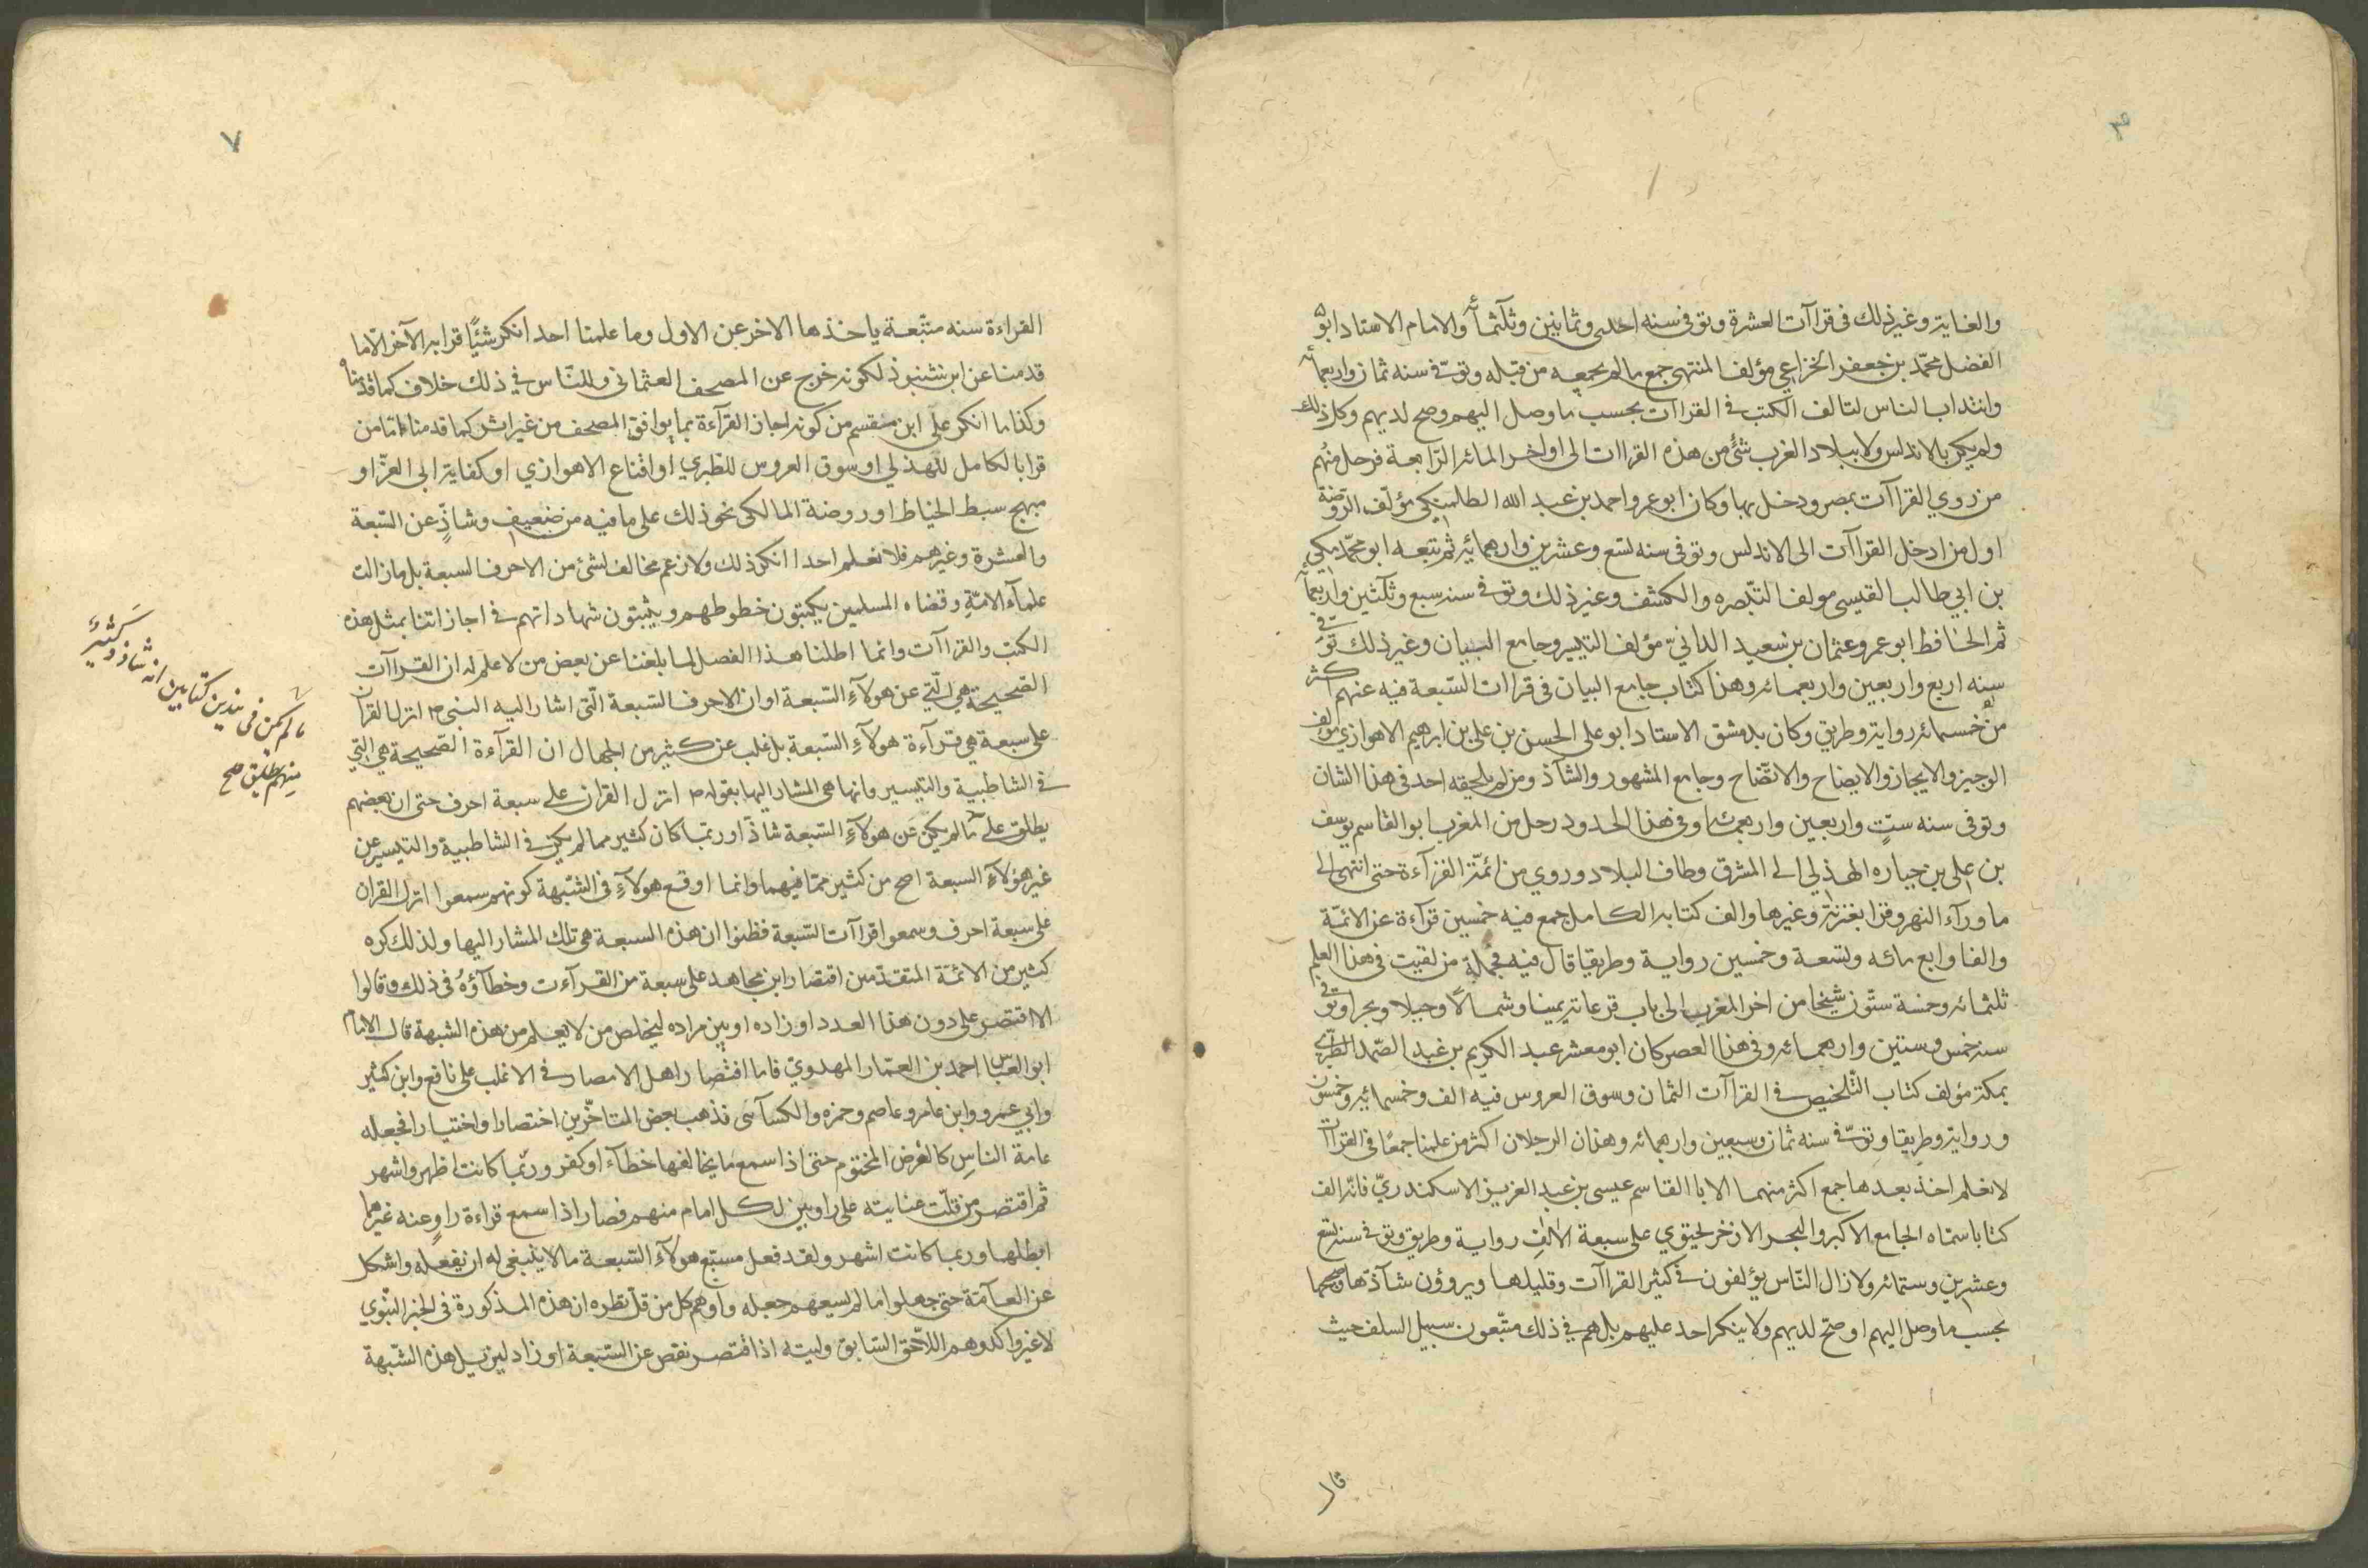 والغاية وغير ذلك في قراآت العشرة وتوفي سنه احدى وثمانين وثلثمأة والامام الاستاد ابو
الفضل محمّد بن جعفر الخزاعي مؤلف المنتهى جمع مالم يجمعه من قبله وتوفّي سنه ثمان واربعمأة
وانتداب الناس لتالف الكتب في القراات بحسب ما وصل اليهم وصح لديهم وكل ذلك
ولم يكن بالاندلس ولا ببلاد الغرب شئٌ من هذه القراات الى اواخر المائه الرّابعة فرحل منهم
من روي القراآت بمصر ودخل بها وكان ابو عمرو احمد بن عبد الله الطلمنكي مؤلّف الرّوضة
اول من ادخل القراآت الى الاندلس وتوفى سنه تسع وعشرين واربعمائه ثم تبعه ابو محمّد مكي
بن ابي طالب القيسى مولف التبصره والكشف وغير ذلك وتوفي سنه سبع وثلثين واربعمأة
ثم الحافظ ابو عمرو عثمان بن سعيد الدانيّ مؤلف التيسير وجامع البيان وغير ذلك توفي
سنه اربع واربعين واربعمائه وهذا كتاب جامع البيان في قراات السّبعة فيه عنهم اكثر
من خمسمائه رواية وطريق وكان بدمشق الاستاد ابو على الحسن بن على بن ابرهيم الاهوازي مولف
الوجيز والايجاز والايضاح والاتّضاح وجامع المشهور والشاذ ومن لم يلحقه احد في هذا الشان
وتوفى سنه ستٍّ واربعين واربعمائه وفي هذا الحدود رحل من المغرب ابو القاسم يوسف
بن على بن جباره الهذلي الى المشرق وطاف البلاد وروي من ائمّة القرآءة حتى انتهى الى
ما ورآء النهر وقرا بغزنة وغيرها والف كتابه الكامل جمع فيه خمسين قرآءة عن الائمّة
والفا واربع مائه وتسعة وخمسين رواية وطريقا قال فيه فجملة من لقيت في هذا العلم
ثلثمائه وخمسة ستّون شيخا من اخر المغرب الى باب فرغانه يمينا وشمالا وجبلا وبحرا وتوفي
سنه خمس وستين واربعمائه وفي هذا العصر كان ابو معشر عبد الكريم بن عبد الصّمد الطبري
بمكة مؤلف كتاب التّلخيص في القراآت الثمان وسوق العروس فيه الف وخمسمائه وخمسون
ورواية وطريقا وتوفّي سنه ثمان وسبعين واربعمائه وهذان الرجلان اكثر من علمنا جمعًا في القراآت
لا نعلم احد بعدها جمع اكثر منهما الا ابا القاسم عيسى بن عبد العزيز الاسكندريّ فانّه الف
كتابا سمّاه الجامع الاكبر والبحر الازخر يحتوي على سبعة الالف رواية وطريق وتوفي سنه تسع
وعشرين وستمائه ولا زال النّاس يؤلفون في كثير القراآت وقليلها ويروؤن شآذّها وصحيحها
بحسب ما وصل اليهم او صحّ لديهم ولا ينكر احد عليهم بل هم في ذلك متّبعون سبيل السلف حيث
قال
٧
القراءة سنه متّبعة ياخذها الاخر عن الاول وما علمنا احد انكر شئيًا قرا به الآخر الّا ما
قدمنا عن ابن شنبوذ لكونه خرج عن المصحف العثماني وللنّاس في ذلك خلاف كما قدّمناه
وكذا ما انكر على ابن مقسم من كونه اجاز القرآءة بما يوافق المصحف من غير اثر كما قدمنا امّا من
قرا بالكامل للهذلي او سوق العروس للطبري او اقناع الاهوازي او كفاية ابى العزّ او
مبهج سبط الخياط او روضة المالكى نحو ذلك على ما فيه من ضعيف وشاذٍّ عن السّبعة
والعشرة وغيرهم فلا نعلم احدا انكر ذلك ولا زعم مخالف لشئ من الاحرف السبعة بل ما زالت
علمآء الامّة وقضاه المسلمين يكتبون خطوطهم ويثبتون شهاداتهم في اجازاتنا بمثل هذه
الكتب والقراآت وانما اطلنا هذا الفصل لما بلغنا عن بعض من لا علم له ان القراآت
الصّحيحة هي الّتي عن هولآءِ السّبعة او ان الاحرف السّبعة الّتى اشار اليه النبى ص انزل القرآن
على سبعة هي قرآءة هولآءِ السّبعة بل غلب عن كثير من الجهال ان القرآءة الصّحيحة هي الّتي
في الشاطبية والتيسير وانها هى المشار اليها بقوله ص انزل القران على سبعة احرف حتى ان بعضهم
يطلق على ما لم يكن عن هولآءِ السّبعة شاذّا وربّما كان كثير مما لم يكن في الشاطبية والتيسير عن
غير هؤلآءِ السبعة اصح من كثير ممّا فيهما وانما اوقع هولآءِ في الشّبهة كونهم سمعوا انزل القران
على سبعة احرف وسمعوا قراآت السّبعة فظنوا ان هذه السبعة هي تلك المشار اليها ولذلك كره
كثير من الائمّة المتقدّمين اقتصار ابن مجاهد على سبعة من القرآءت وخطآؤهُ في ذلك وقالوا
الا اقتصر على دون هذا العدد او زاده او بيّن مراده ليخلص من لا يعلم من هذه الشبهة قال الامام
ابو العبّاس احمد بن العمّار المهدويّ فاما اقتصار اهل الامصار في الاغلب على نافع وابن كثير
وابي عمرو وابن عامر وعاصم وحمزه والكسآئى فذهب بعض المتاخّرين اختصارا واختيارا فجعله
عامة الناسِ كالفرض المختوم حتى اذا سمع ما يخالفها خطآء او كفر وربّما كانت اظهر واشهر
ثم اقتصر من قلّت عنايته على راويين لكل امام منهم فصار اذا سمع قراءة راوٍ عنه غيرهما
ابطلها وربما كانت اشهر ولقد فعل مسبّع هولآءِ السّبعة ما لا ينبغى له ان يفعله واشكل
عن العآمّة حتى جهلوا ما لم يسعهم جهله واوهم كل من قلّ نظره ان هذه المذكورة في الخبر النّبوي
لا غير واكد وهم اللاحق السّابق وليته اذا اقتصر نقص عن السّبعة او زاد ليزيل هذه الشّبهة
ما لم يكن فى هذين كتابين انه شاذ وكثيرٌ
منهم يطلق صح